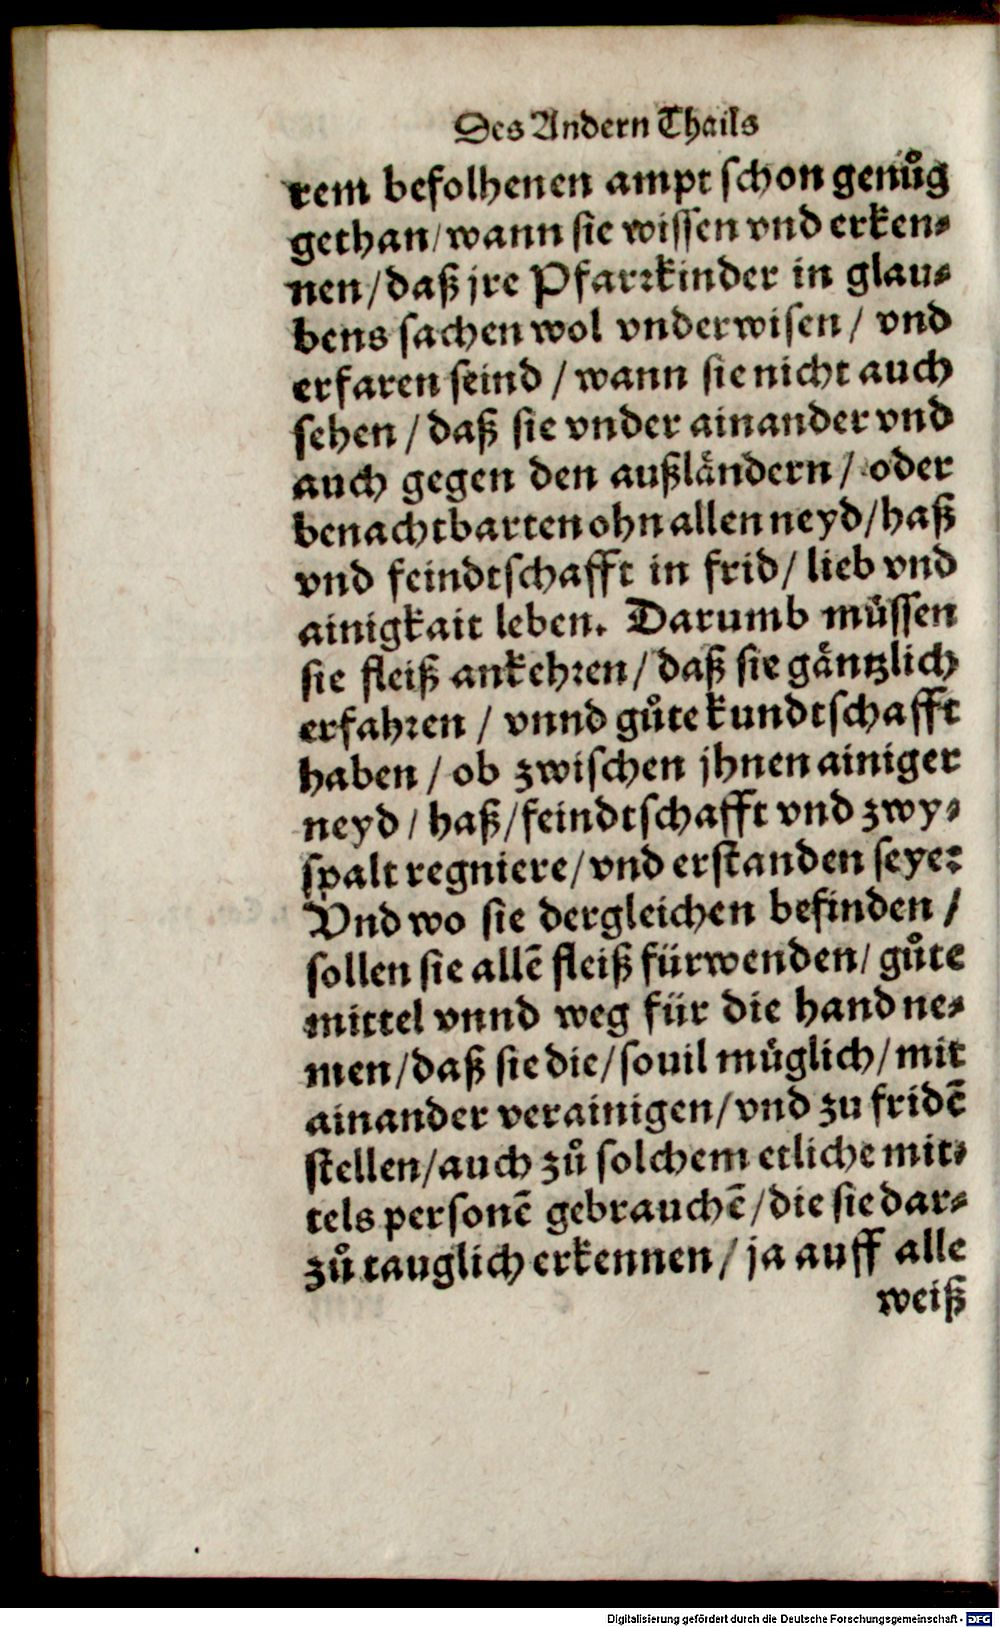 Des Andern Thails
rem befolhenen ampt schon genůg
gethan/wann sie wissen vnd erken⸗
nen/daß jre Pfarrkinder in glau⸗
bens sachen wol vnderwisen/ vnd
erfaren seind / wann sie nicht auch
sehen / daß sie vnder ainander vnd
auch gegen den außländern / oder
benachtbarten ohn allen neyd/haß
vnd feindtschafft in frid/ lieb vnd
ainigkait leben. Darumb müssen
sie fleiß ankehren/ daß sie gäntzlich
erfahren / vnnd gůte kundtschafft
haben / ob zwischen jhnen ainiger
neyd / haß/feindtschafft vnd zwy⸗
spalt regniere/vnd erstanden seye:
Vnd wo sie dergleichen befinden /
sollen sie allē fleiß fürwenden/ gůte
mittel vnnd weg für die hand ne⸗
men/daß sie die/souil müglich/mit
ainander verainigen/vnd zu fridē
stellen/auch zů solchem etliche mit⸗
tels personē gebrauchē/die sie dar⸗
zů tauglich erkennen / ja auff alle
weiß
Digitalisierung gefördert durch die Deutsche Forschungsgemeinschaft - DFG